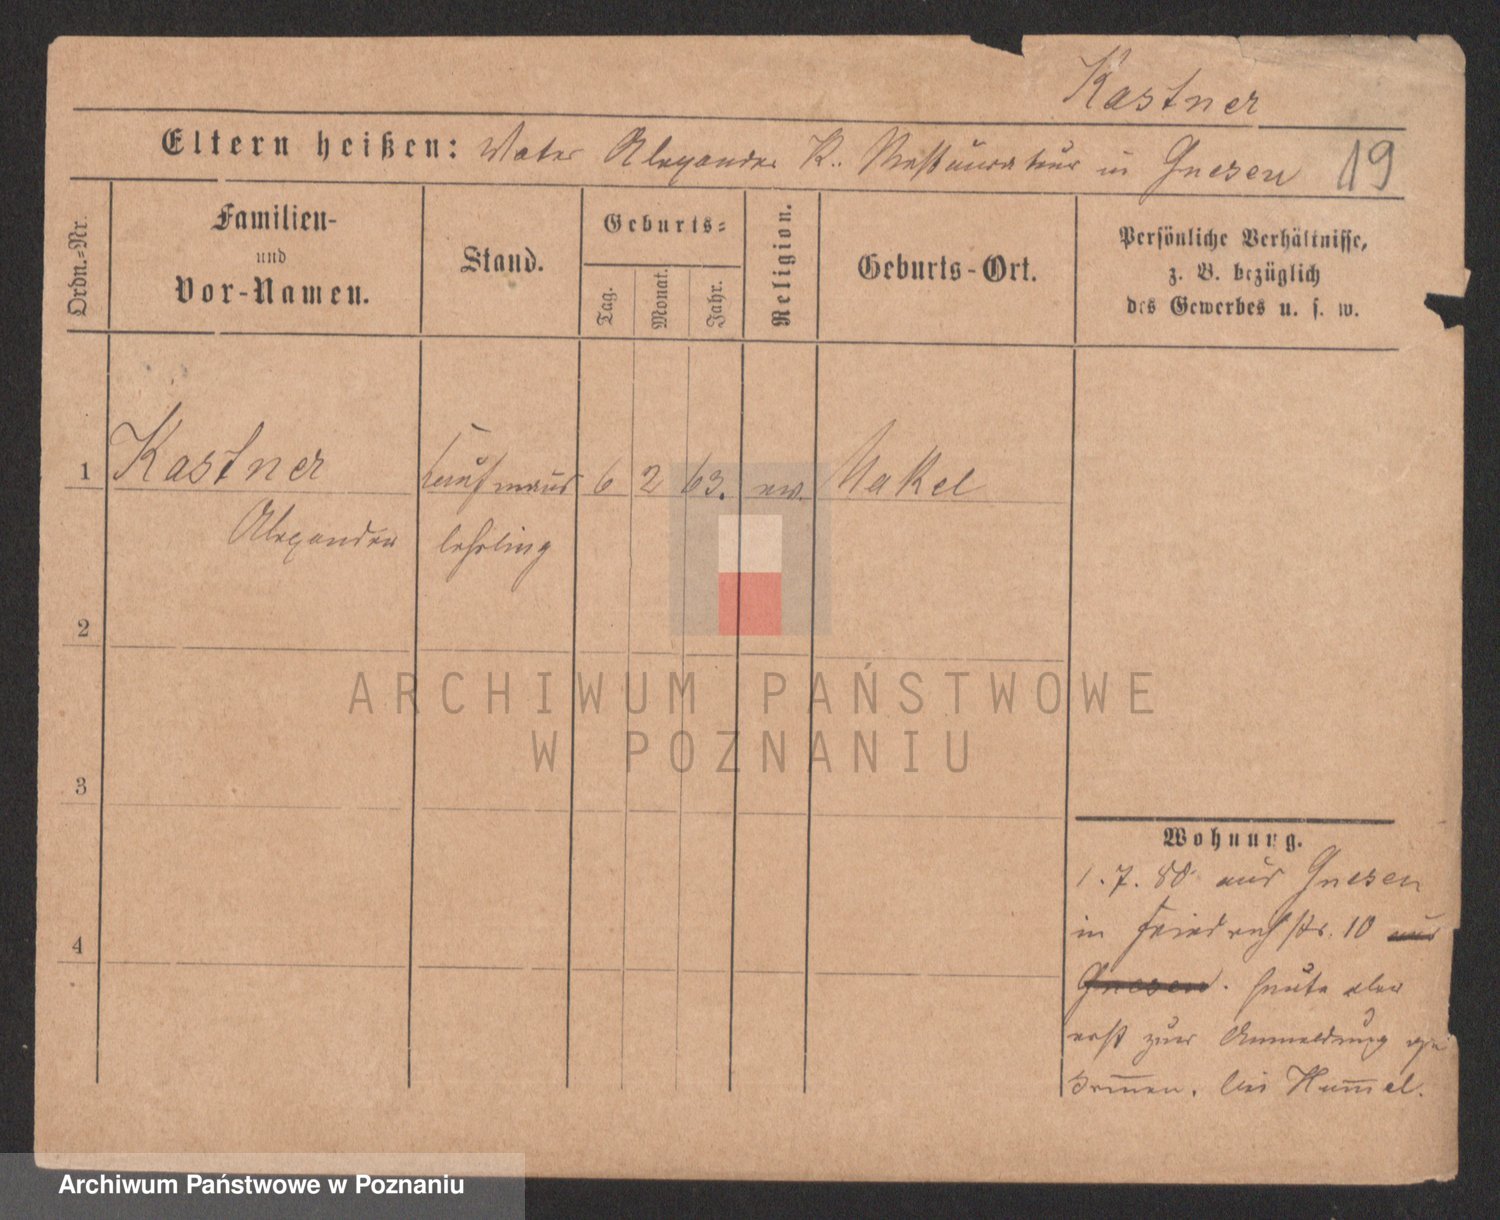 Kastner
Eltern heißen: Vater Alexander K. Restaurateur in Gnesen 19
Ordn.-Nr.
Familien-
und
Vor-Namen.
Stand.
Geburts-
Tag.
Monat.
Jahr.
Religion.
Geburts-Ort.
Persönliche Verhältnisse,
z. B. bezüglich
des Gewerbes u. s. w.
1 Kastner Kaufmanns 6 2 63. ev. Nakel
Alexander lehrling
2
3
4
Wohnung.
1. 7. 80 aus Gnesen
in Friedrichstr. 10 aus
Gnesen. heute aber
erst zur Anmeldung ge
kommen. bei Hummel.
ARCHIWUM PAŃSTWOWE
W POZNANIU
Archiwum Państwowe w Poznaniu